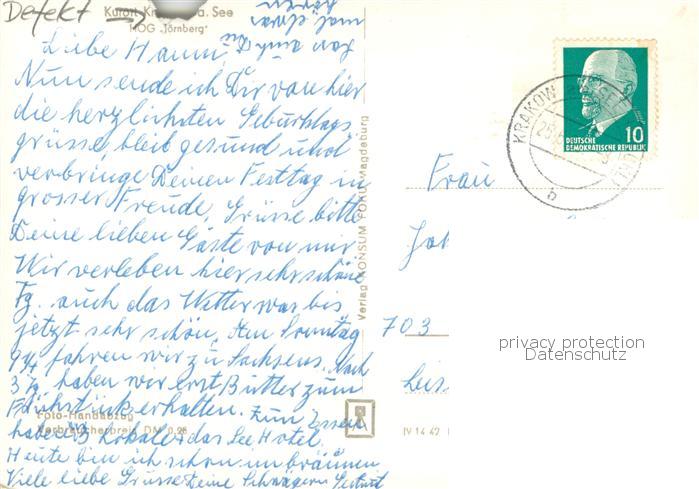 Defekt →
Kurort Kr a. See
HOG „Jörnberg“
Liebe Hanni,
Nun sende ich Dir von hier
die herzlichsten Geburtstags
grüsse, bleib gesund und
verbringe Deinen Festtag in
grosser Freude, Grüsse bitte
Deine lieben Gäste von mir
Wir verleben hier sehr schöne
Tg. auch das Wetter war bis
jetzt sehr schön, Am Sonntag
9¼ fahren wir zu Sachsens. Nach
3 Tg. haben wir erst Butter zum
Frühstück erhalten. Zum Essen
haben 3 Lokale + das See Hotel.
Heute bin ich schon im bräunen
Viele liebe Grüsse Deine Schwägerin
Foto-Handabzug
Verbraucherpreis DM 0,25
Verlag KONSUM FOKU Magdeburg
IV 14 42
KRAKOW
DEUTSCHE
DEMOKRATISCHE REPUBLIK
10
Frau
703
privacy protection
Datenschutz